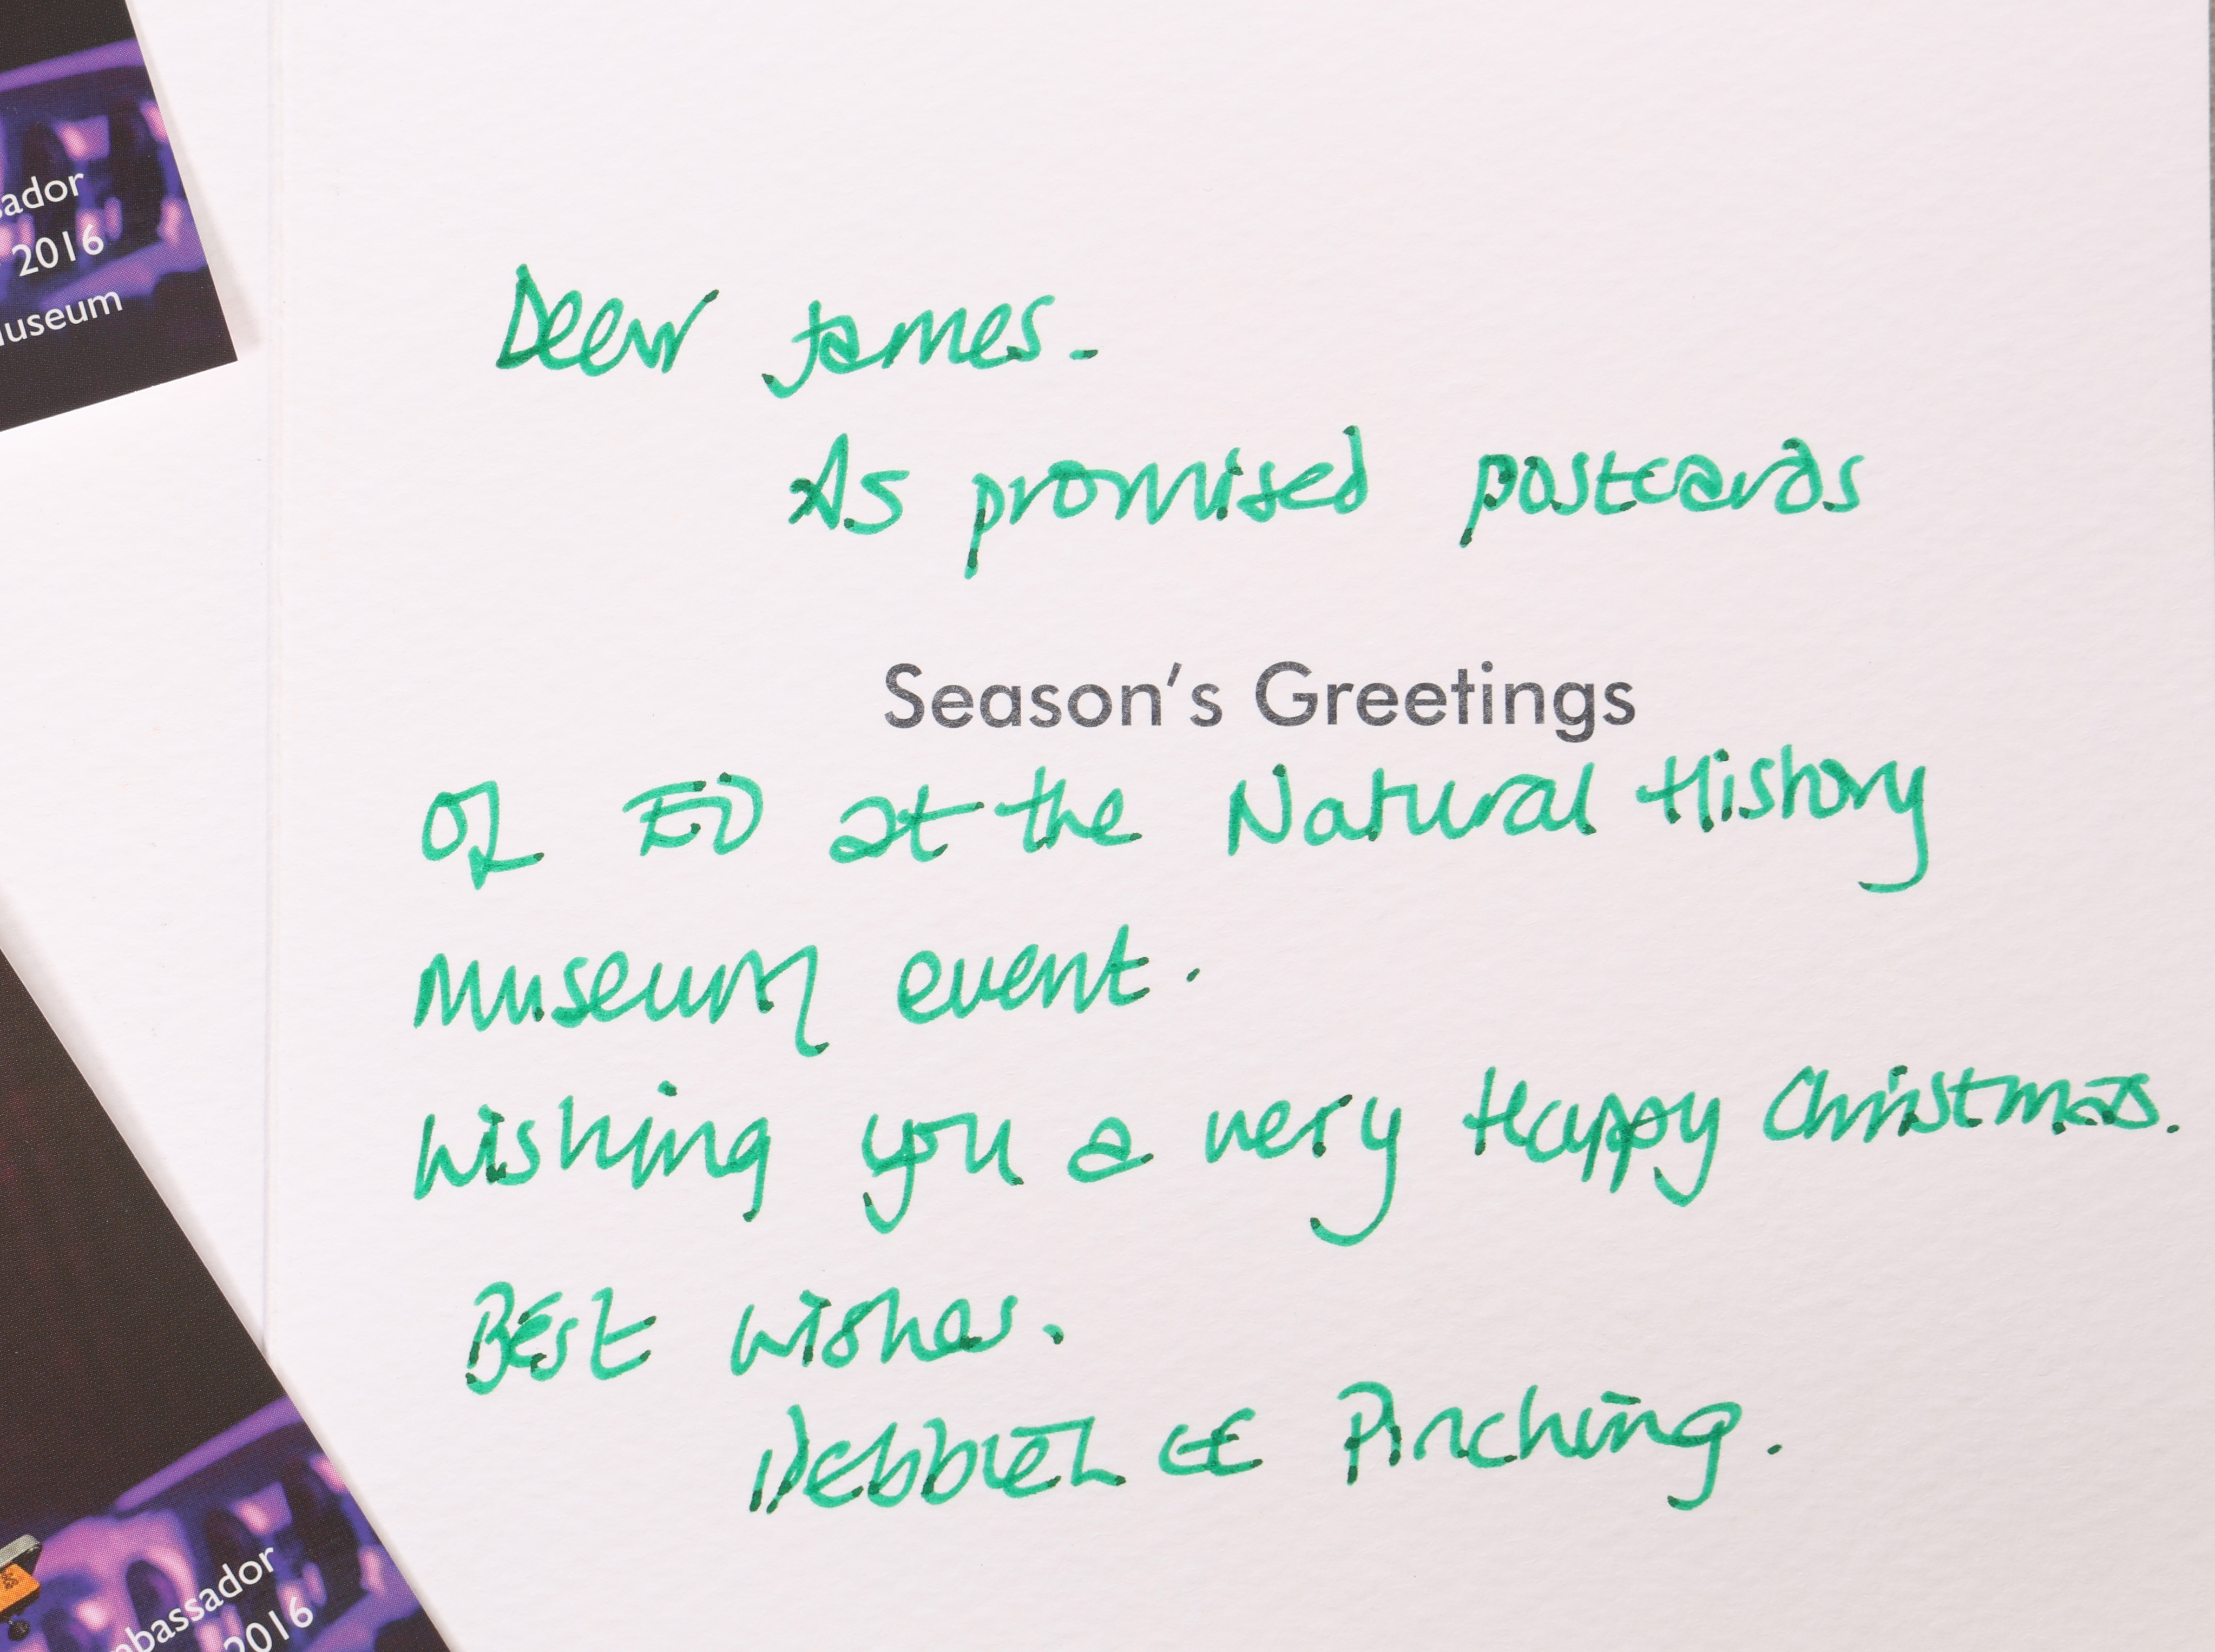 ador
2016
useum
Dear James.
As promised postcards
Season's Greetings
Of ED at the Natural History
museum event.
Wishing you a very Happy Christmas.
Best wishes.
Pinching.
bassador
2016